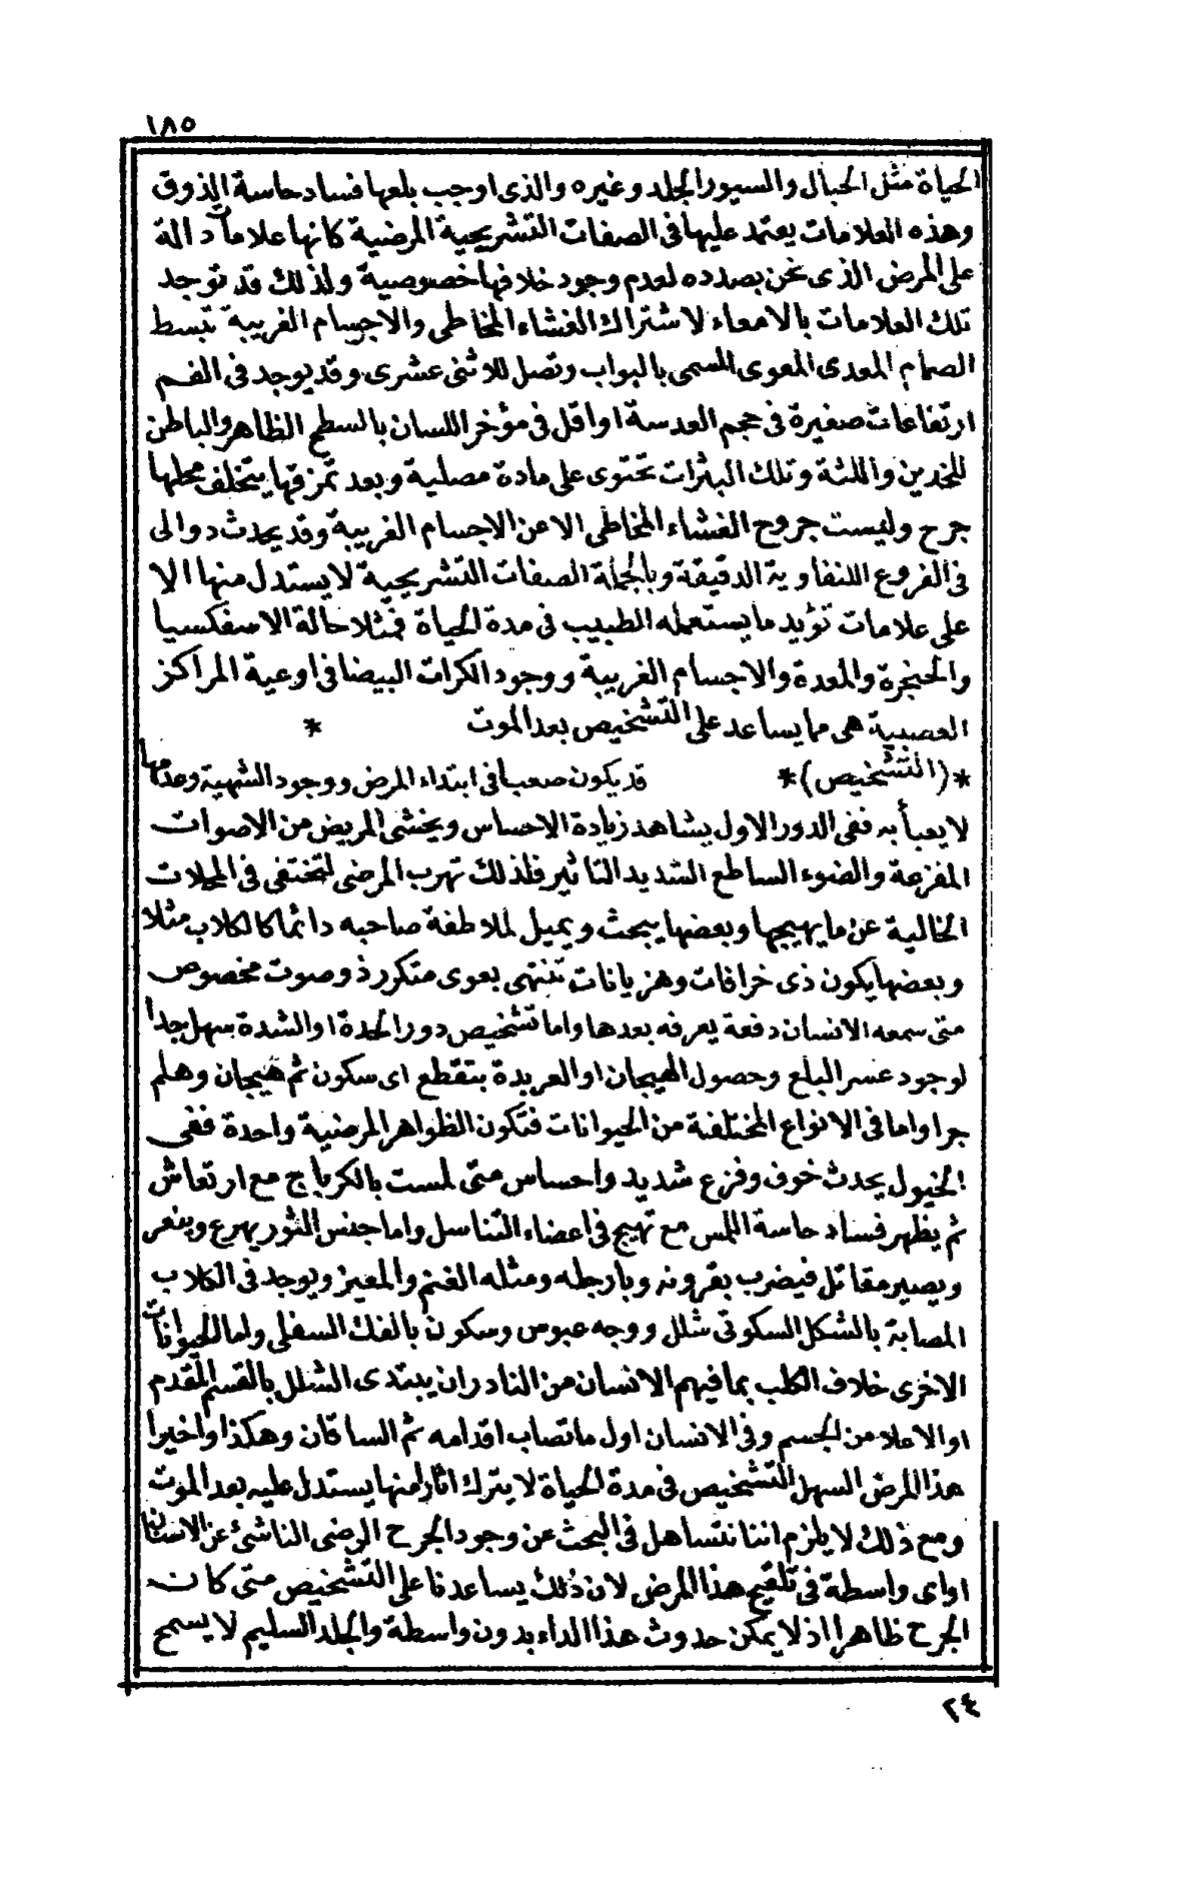 ١٨٥
الحياة مثل الحبال والسيور الجلد وغيره والذى اوجب بلعها فساد حاسة الذوق
وهذه العلامات يعتمد عليها فى الصفات التشريحية المرضية كانها علامات دالة
على المرض الذى نحن بصدده لعدم وجود خلافها خصوصية ولذلك قد توجد
تلك العلامات بالامعاء لاشتراك الغشاء المخاطى والاجسام الغريبة تبسط
الصمام المعدى المعوى المسمى بالبواب وتصل للاثنى عشرى وقد يوجد فى الفم
ارتفاعات صغيرة فى حجم العدسة او اقل فى مؤخر اللسان بالسطح الظاهر والباطن
للخدين واللثة وتلك البثرات تحتوى على مادة مصلية وبعد تمزقها يتخلف محلها
جرح وليست جروح الغشاء المخاطى الا عن الاجسام الغريبة وقد يحدث دوالى
فى الفروع اللنفاوية الدقيقة وبالجملة الصفات التشريحية لا يستدل منها الا
على علامات تؤيد ما يستعمله الطبيب فى مدة الحياة فمثلا حالة الاسفكسيا
والحنجرة والمعدة والاجسام الغريبة ووجود الكرات البيضا فى اوعية المراكز
العصبية هى مما يساعد على التشخيص بعد الموت *
*(التشخيص)* قد يكون صعبا فى ابتداء المرض ووجود الشهية وعدمها
لا يعبأ به ففى الدور الاول يشاهد زيادة الاحساس ويخشى المريض من الاصوات
المفزعة والضوء الساطع الشديد التاثير فلذلك تهرب المرضى لتختفى فى المحلات
الخالية عن ما يهيجها وبعضها يبحث ويميل لملاطفة صاحبه دائما كالكلاب مثلا
وبعضها يكون ذى خرافات وهزيانات تنتهى بعوى متكرر ذو صوت مخصوص
متى سمعه الانسان دفعة يعرفه بعدها واما تشخيص دور الحدة او الشدة سهل جدا
لوجود عسر البلع وحصول الهيجان او العربدة بتقطع اى سكون ثم هيجان وهلم
جرا واما فى الانواع المختلفة من الحيوانات فتكون الظواهر المرضية واحدة ففى
الخيول يحدث خوف وفزع شديد واحساس متى لمست بالكرباج مع ارتعاش
ثم يظهر فساد حاسة اللمس مع تهيج فى اعضاء التناسل واما جنس الثور يهرع وينعر
ويصير مقاتل فيضرب بقرونه وبارجله ومثله الغنم والمعيز ويوجد فى الكلاب
المصابة بالشكل السكوتى شلل ووجه عبوس وسكون بالفك السفلى واما الحيوانات
الاخرى خلاف الكلب بما فيهم الانسان من النادر ان يبتدى الشلل بالقسم المقدم
او الاعلا من الجسم وفى الانسان اول ما تصاب اقدامه ثم الساقان وهكذا واخيرا
هذا المرض السهل التشخيص فى مدة الحياة لا يترك اثارا منها يستدل عليه بعد الموت
ومع ذلك لا يلزم اننا نتساهل فى البحث عن وجود الجرح الرضى الناشئ عن الاسنان
او اى واسطة فى تلقيح هذا المرض لان ذلك يساعدنا على التشخيص متى كان
الجرح ظاهرا اذ لا يمكن حدوث هذا الداء بدون واسطة والجلد السليم لا يسمح
٢٤